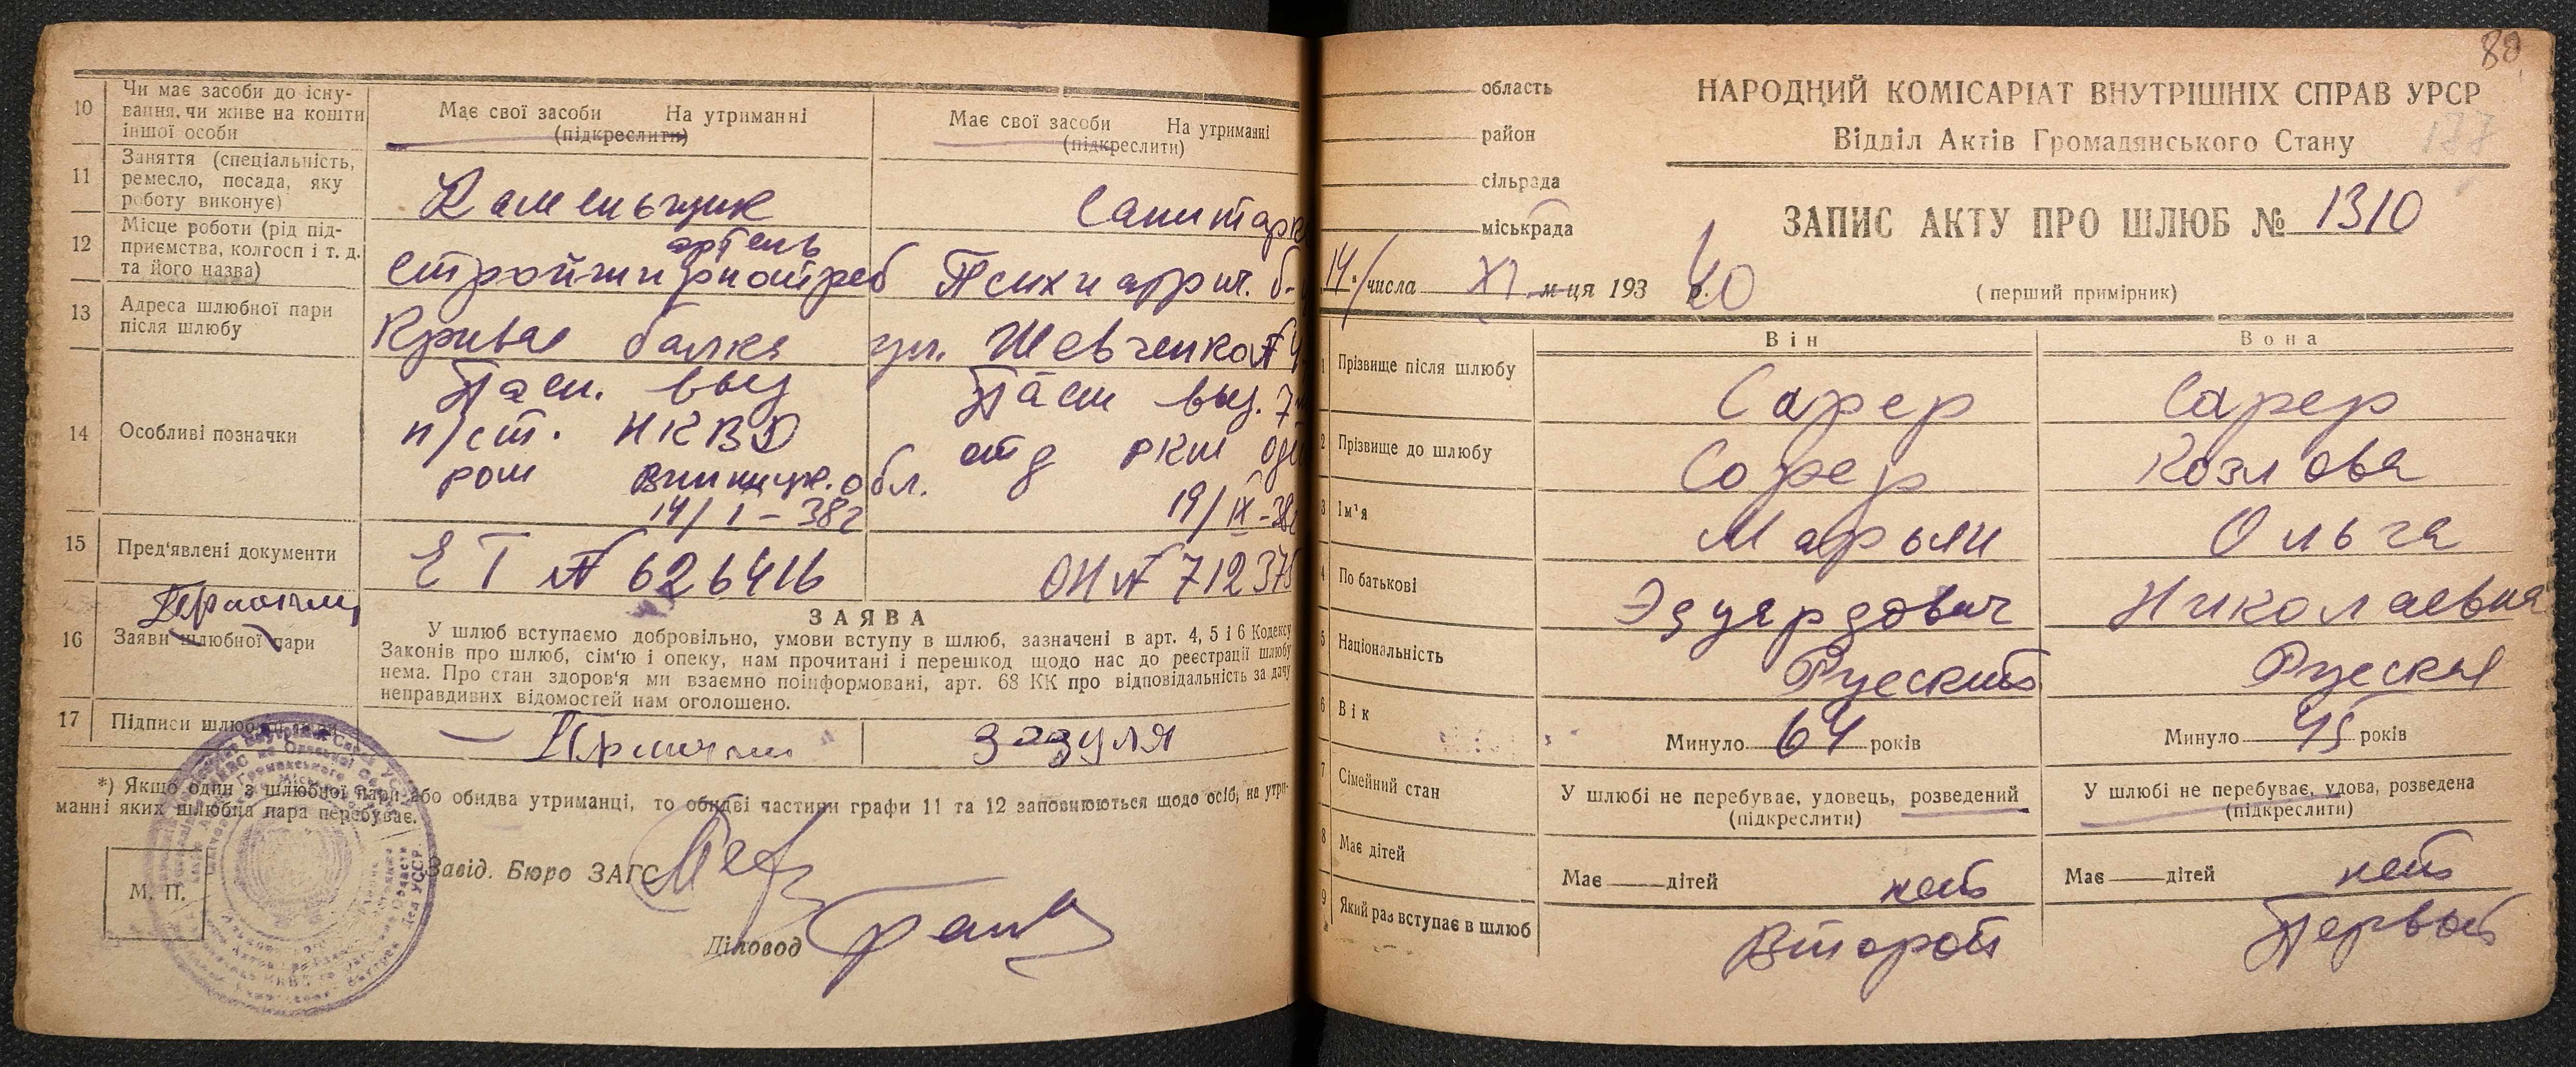 10
Чи має засоби до існу-
вання, чи живе на кошти
іншої особи
Має свої засоби На утриманні
(підкреслити)
Має свої засоби На утриманні
(підкреслити)
11
Заняття (спеціальність,
ремесло, посада, яку
роботу виконує)
Каменьщик
Санитарк
12
Місце роботи (рід під-
приємства, колгосп і т. д.
та його назва)
артель
Психиатрич. б-
13
Адреса шлюбної пари
після шлюбу
Кривая балка ул. Шевченко №
14
Особливі позначки
Пасп. выд
п/ст. НКВД
Винницк. обл.
14/ I – 38г
Пасп выд. 7
отд ркм
19/ IX -38
15
Пред'явлені документи
ЕТ № 626416
ОН № 712375
16
Заяви шлюбної пари
ЗАЯВА
У шлюб вступаємо добровільно, умови вступу в шлюб, зазначені в арт. 4, 5 і 6 Кодексу
Законів про шлюб, сім'ю і опеку, нам прочитані і перешкод щодо нас до реєстрації шлюбу
нема. Про стан здоров'я ми взаємно поінформовані, арт. 68 КК про відповідальність за дачу
неправдивих відомостей нам оголошено.
17
Підписи
*) Якщо один з шлюбної пари або обидва утриманці, то обидві частини графи 11 та 12 заповнюються щодо осіб, на утри-
манні яких шлюбна пара перебуває.
М. П.
Завід. Бюро ЗАГС
Діловод
80
область
район
сільрада
міськрада
НАРОДНИЙ КОМІСАРІАТ ВНУТРІШНІХ СПРАВ УРСР
Відділ Актів Громадянського Стану
177
ЗАПИС АКТУ ПРО ШЛЮБ № 1310
14 числа XI м-ця 193 40 р.
(перший примірник)
Він
Вона
1
Прізвище після шлюбу
Сарер
Сарер
2
Прізвище до шлюбу
Козлова
3
Ім'я
Марьян
Ольга
4
По батькові
Эдуардович
Николаевна
5
Національність
Русский
Руская
6
Вік
Минуло 64 років
Минуло 45 років
7
Сімейний стан
У шлюбі не перебуває, удовець, розведений
(підкреслити)
У шлюбі не перебуває, удова, розведена
(підкреслити)
8
Має дітей
Має дітей нет
Має дітей нет
9
Який раз вступає в шлюб
Второй
Первый